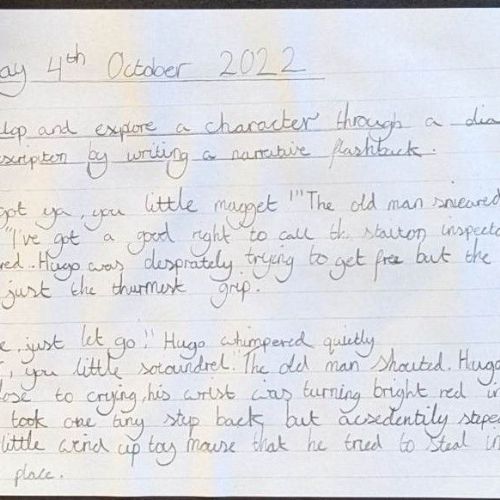 ay 4th October 2022
lop and explore a character through a dia
scripton by writing a narrative flashback.
got ya, you little magget!" The old man snieared
"I've got a good right to call th staiton inspecto
red. Hugo was desprately trying to get free but the
just the thurmest grip.
e just let go!" Hugo whimpered quietly
, you little scoundrel." The old man shouted. Hugo
lose to crying, his wrist was turning bright red in
took one tiny step back but acsedentily steped
little wind up toy mouse that he tried to steal in
place.